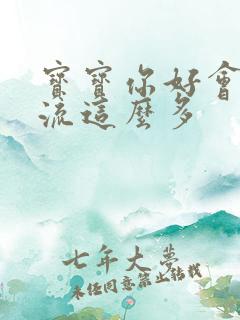 寶寶你好會
流這麼多
七年大夢
未經同意禁止轉載